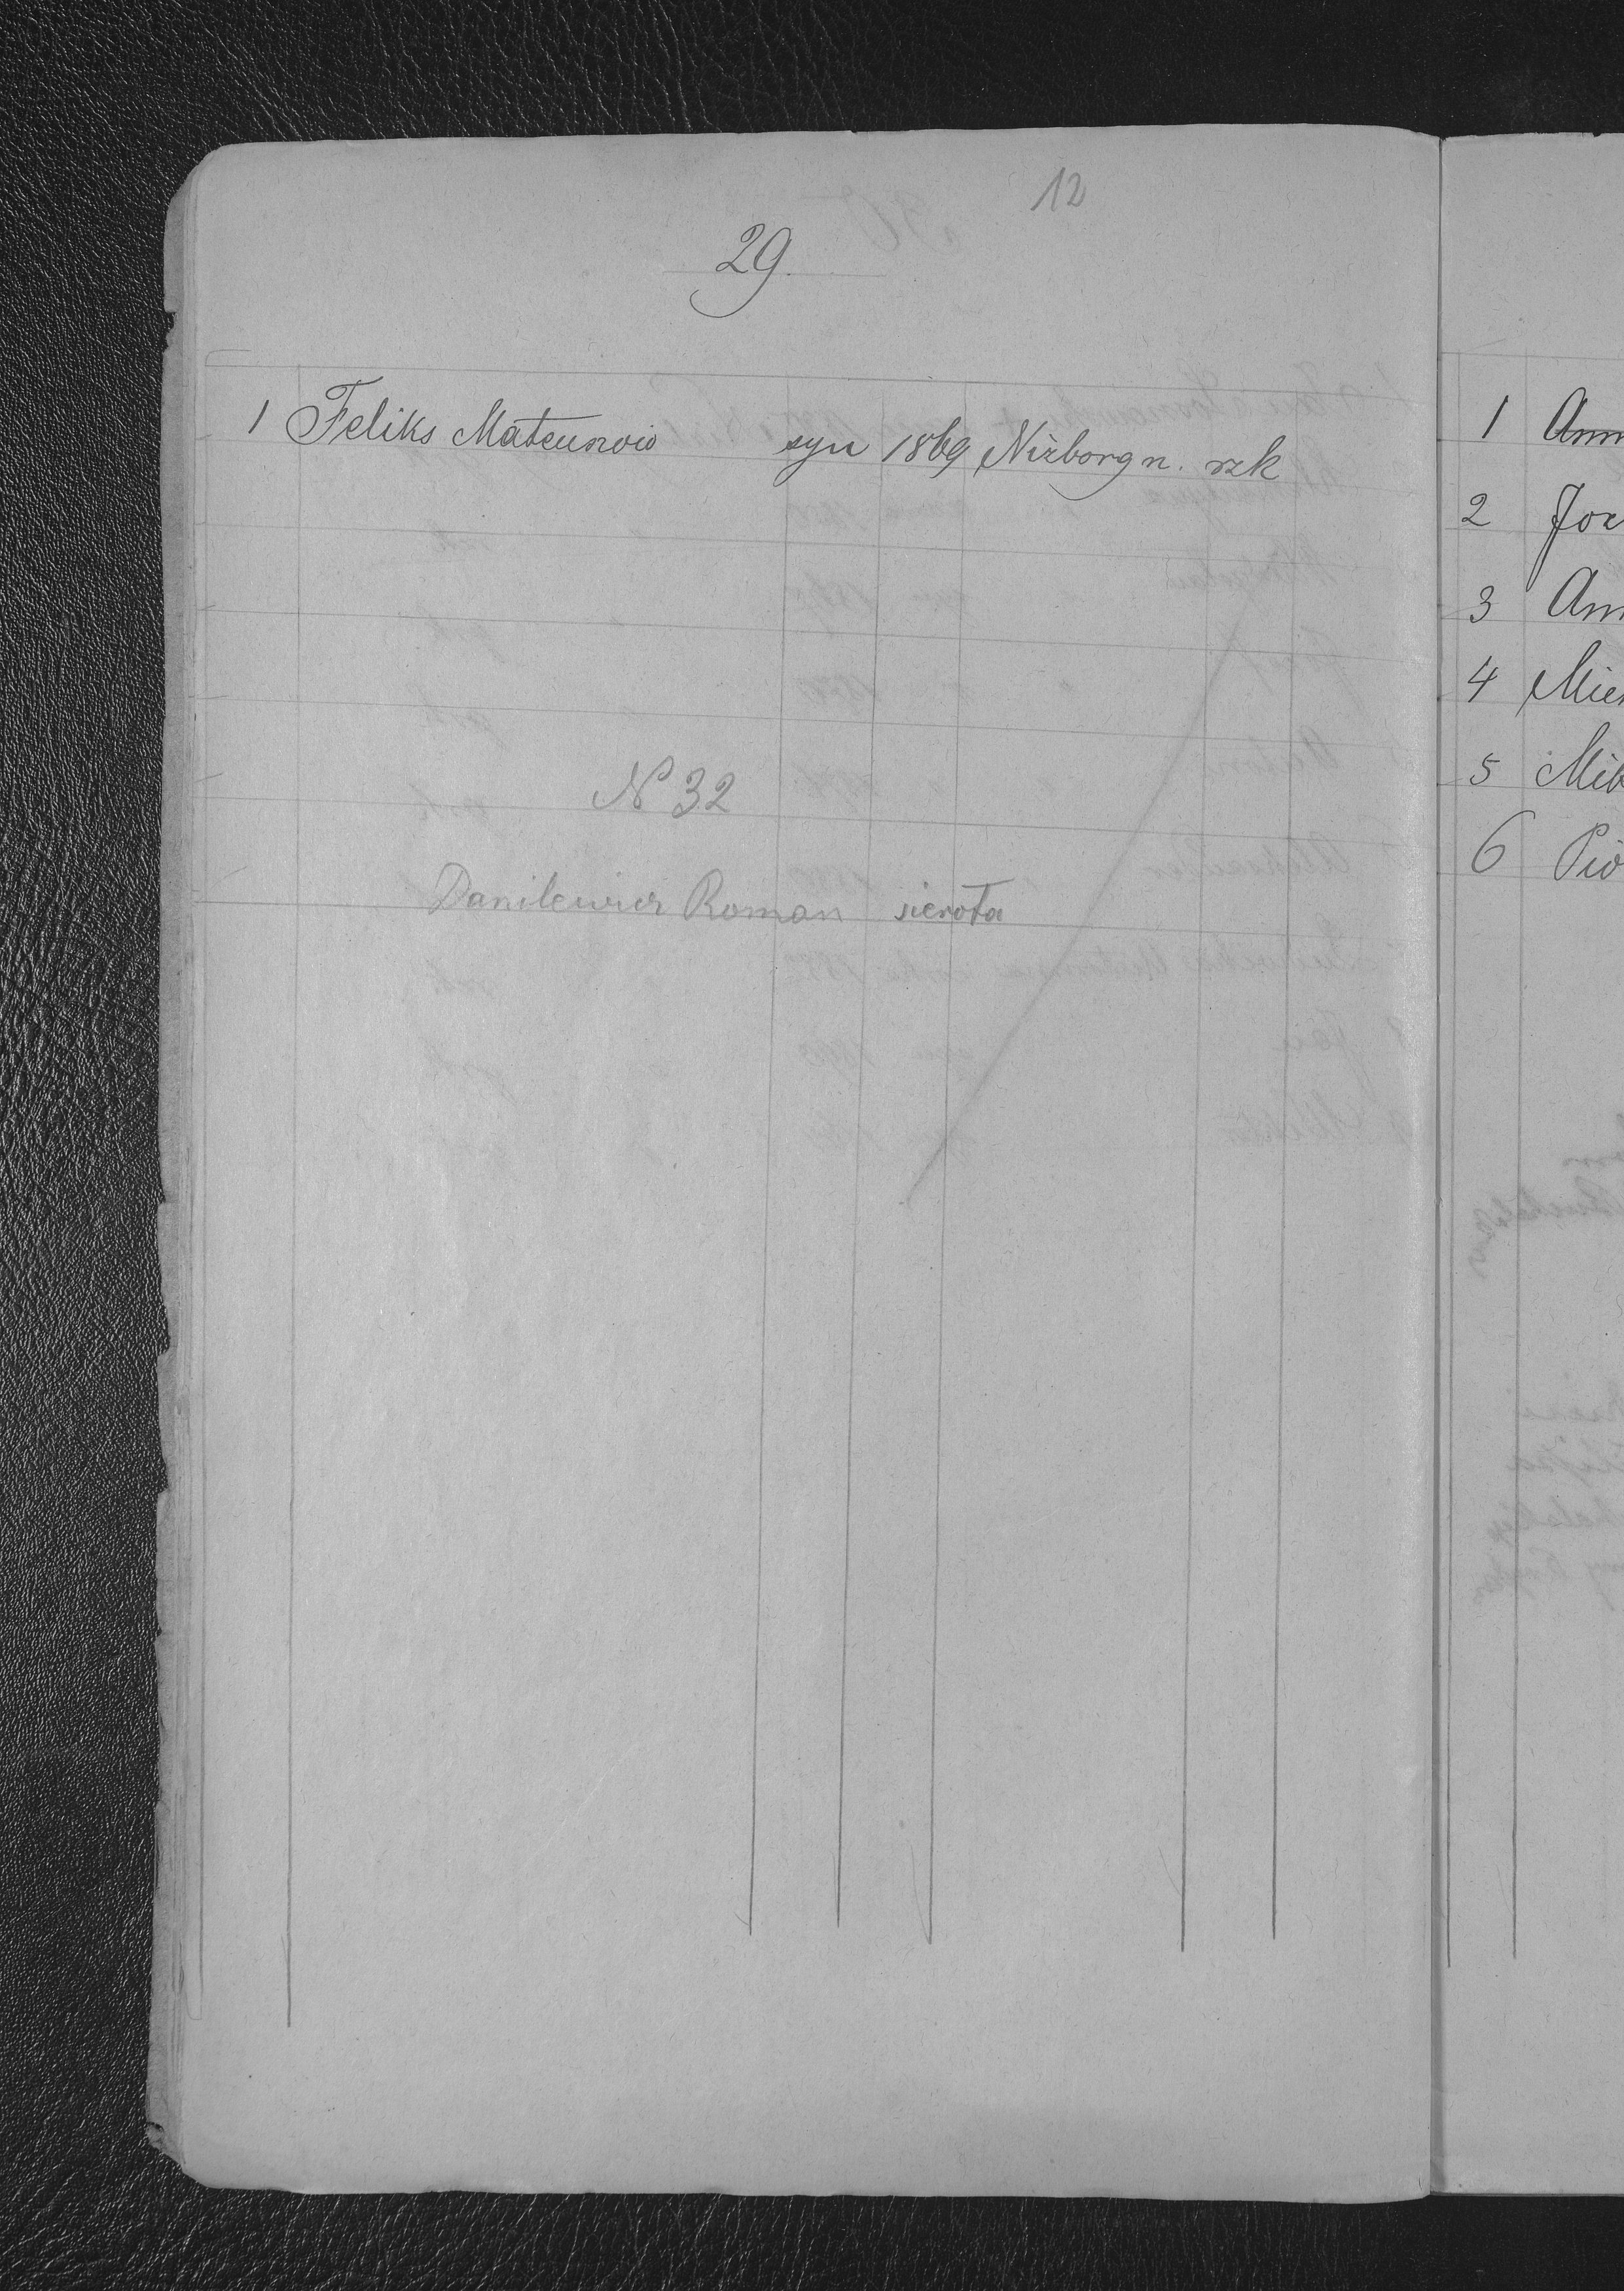 12
29.
1 Feliks Mateunoio syn 1869 Niżborg n. rzk
N 32
Danilewicz Roman sierota
1 Ann
2 Joz
3 Ann
4 Mich
5 Mik
6 Pio